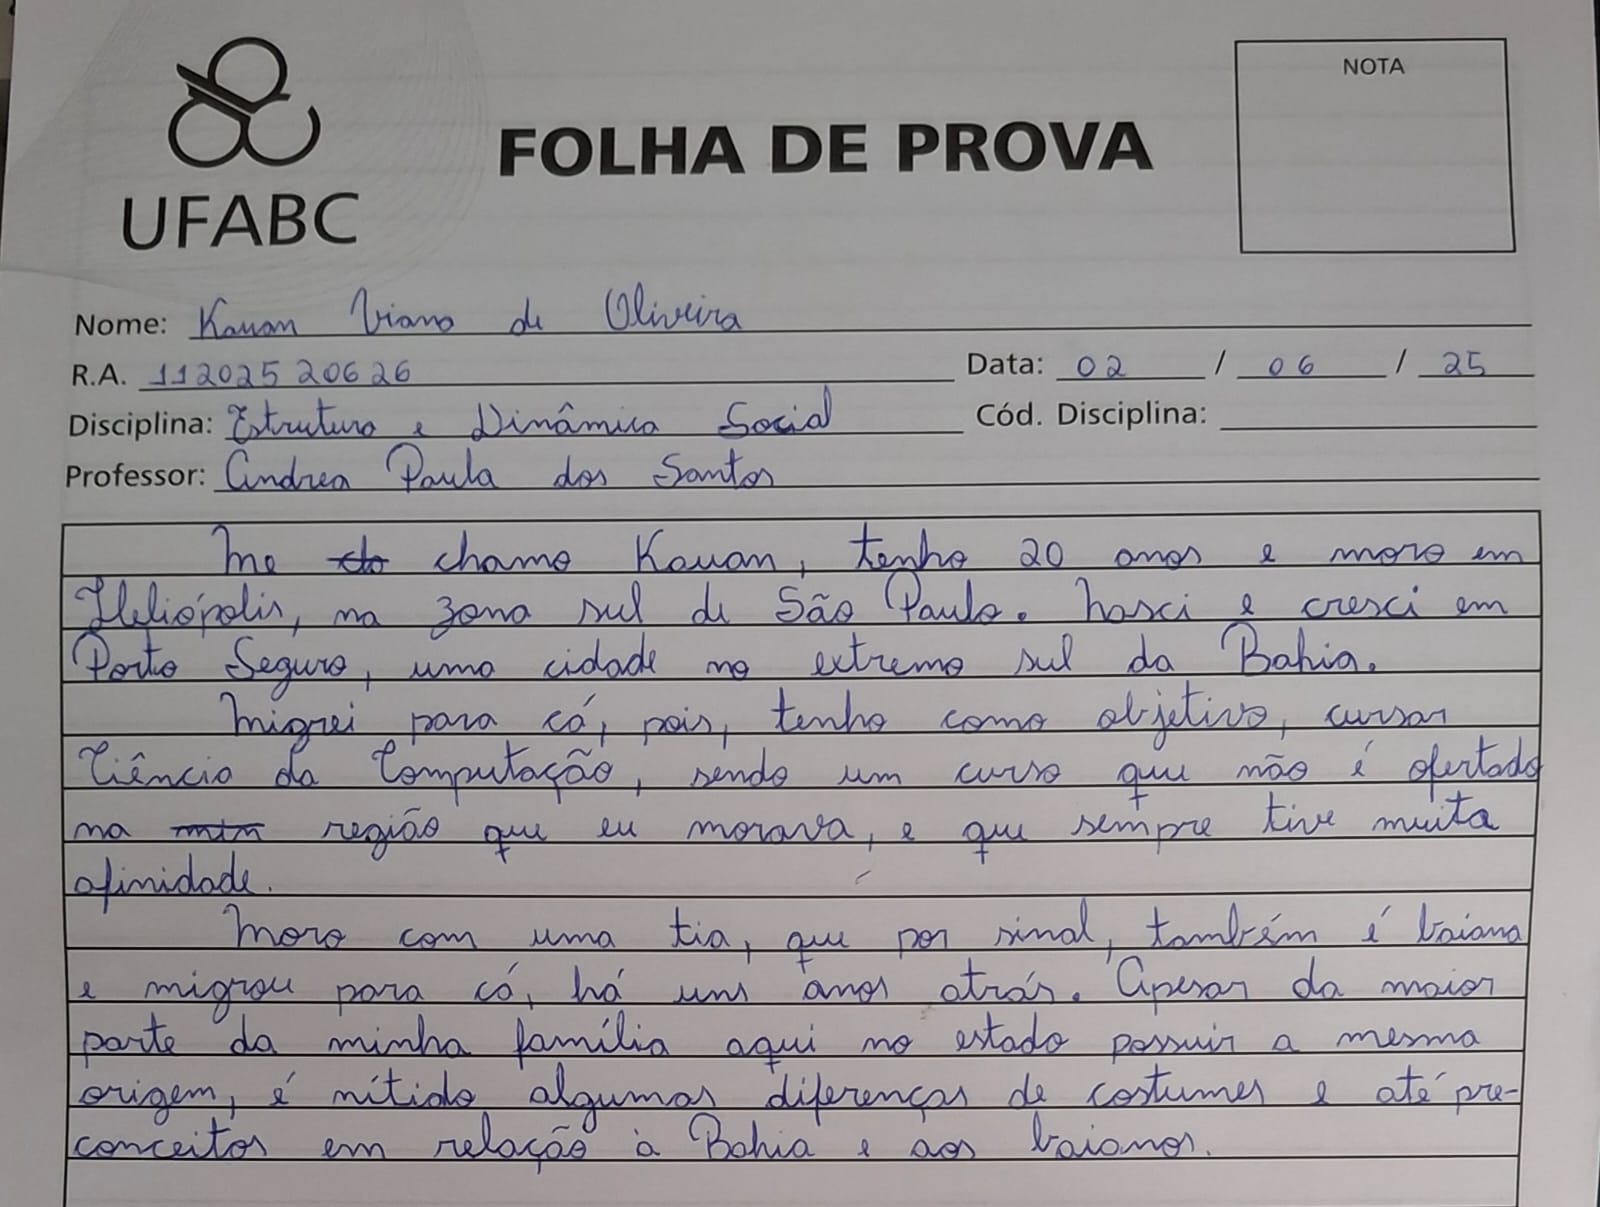 UFABC
FOLHA DE PROVA
NOTA
Nome: Kauan Viana de Oliveira
R.A. 11202520626 Data: 02 / 06 / 25
Disciplina: Estrutura e Dinâmica Social Cód. Disciplina:
Professor: Andrea Paula dos Santos
Me chamo Kauan, tenho 20 anos e moro em
Heliópolis, na zona sul de São Paulo. Nasci e cresci em
Porto Seguro, uma cidade no extremo sul da Bahia.
Migrei para cá, pois, tenho como objetivo, cursar
Ciência da Computação, sendo um curso que não é ofertado
na região que eu morava, e que sempre tive muita
afinidade.
Moro com uma tia, que por sinal, também é baiana
e migrou para cá, há uns anos atrás. Apesar da maior
parte da minha família aqui no estado possuir a mesma
origem, é nítido algumas diferenças de costumes e até pre-
conceitos em relação à Bahia e aos baianos.